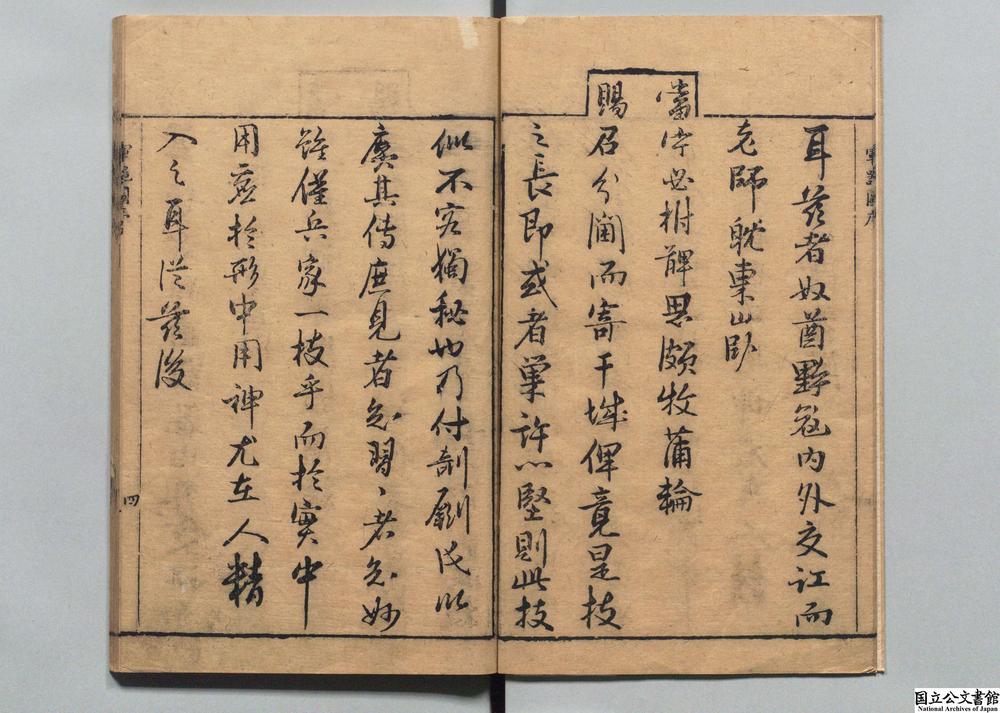 耳茲者奴酋黟寇内外交訌而
老師耽東山卧
當宁必拊髀思頗牧蒲輪
賜召分閫而寄干城俾竟是技
之長即或者巢許心堅則此技
似不容獨秘也乃付剞劂氏以
廣其傳庶見者知習習者知妙
雖僅兵家一枝乎而於實中
用虛於形中用神尤在人精
入之耳從茲後
四
国立公文書館
National Archives of Japan